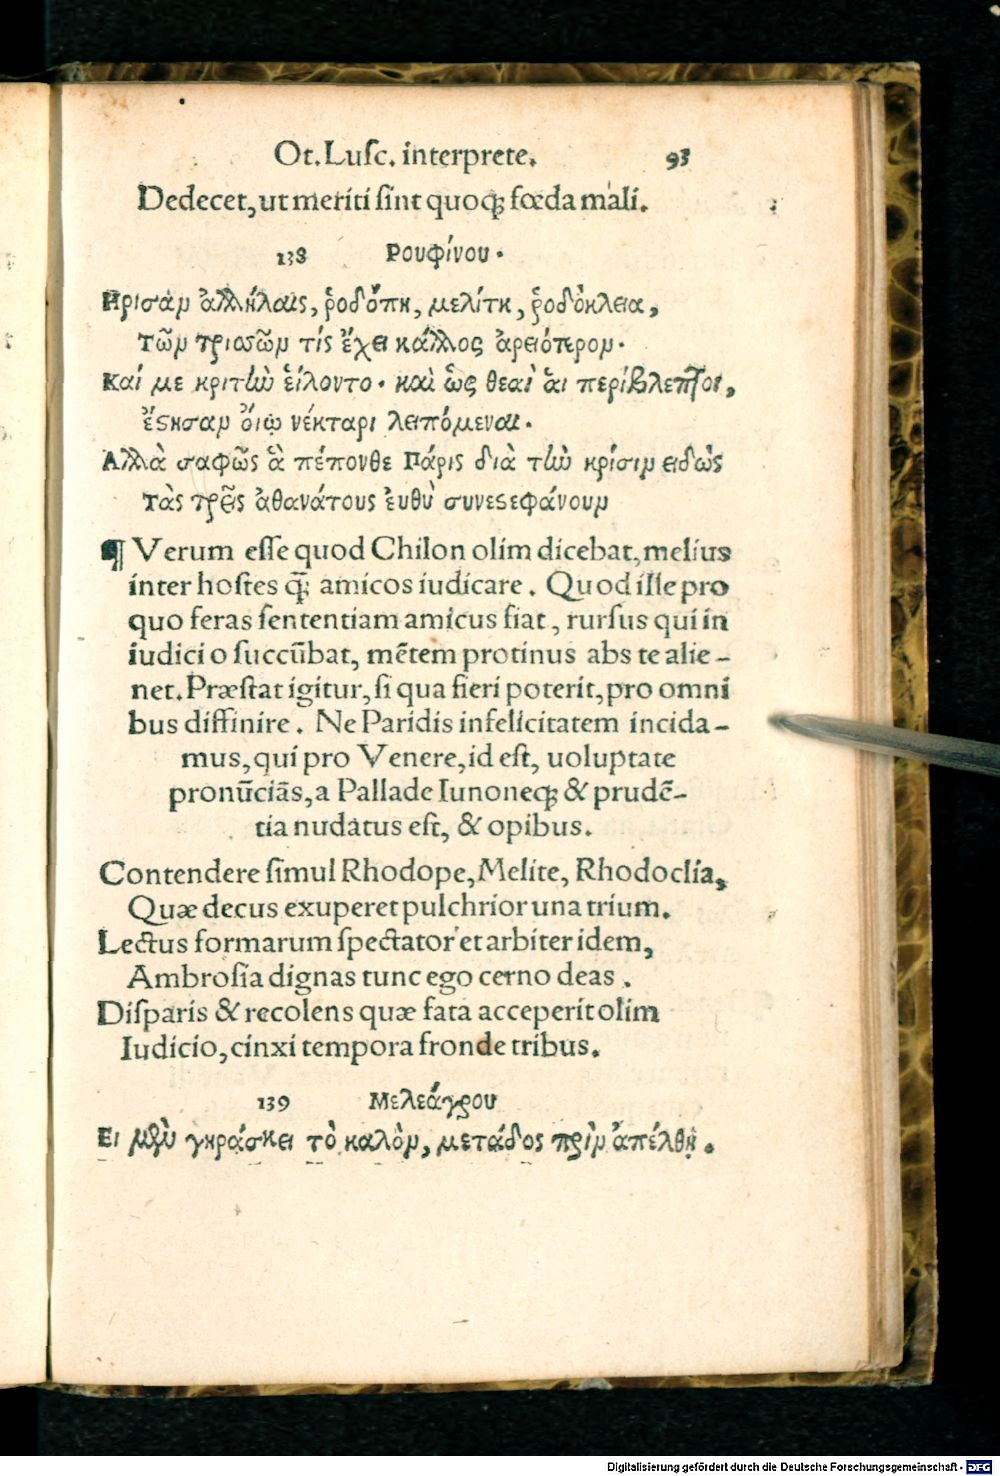 Ot. Lusc. interprete. 93
Dedecet, ut meriti sint quoq; fœda mali.
138 Ρουφίνου.
Ηρισαν ἀλλήλαις, ῥοδόπη, μελίτη, ῥοδόκλεια,
τῶν τρισσῶν τίς ἔχει κάλλος ἀρειότερον.
Καί με κριτὴν εἵλοντο. καὶ ὡς θεαὶ ἁι περίβλεπτοι,
ἔστησαν ὄιῳ νέκταρι λειπόμεναι.
Αλλὰ σαφῶς ἃ πέπονθε Πάρις διὰ τὴν κρίσιν ειδὼς
τὰς τρεῖς ἀθανάτους ἐυθὺ συνεστεφάνουν
¶ Verum esse quod Chilon olim dicebat, melius
inter hostes q̃; amicos iudicare. Quod ille pro
quo feras sententiam amicus fiat, rursus qui in
iudicio succũbat, mẽtem protinus abs te alie-
net. Præstat igitur, si qua fieri poterit, pro omni
bus diffinire. Ne Paridis infelicitatem incida-
mus, qui pro Venere, id est, uoluptate
pronũciãs, a Pallade Iunoneq; & prudẽ-
tia nudatus est, & opibus.
Contendere simul Rhodope, Melite, Rhodoclia,
Quæ decus exuperet pulchrior una trium.
Lectus formarum spectator et arbiter idem,
Ambrosia dignas tunc ego cerno deas.
Disparis & recolens quæ fata acceperit olim
Iudicio, cinxi tempora fronde tribus.
139 Μελεάγρου
Ει μὲν γηράσκει τὸ καλὸν, μετάδος πρὶν ἀπέλθῃ.
Digitalisierung gefördert durch die Deutsche Forschungsgemeinschaft - DFG